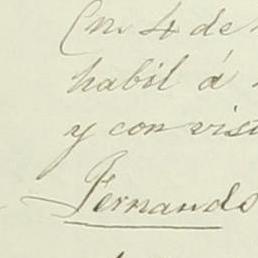 En 4 de
habil á
y con vist
Fernando